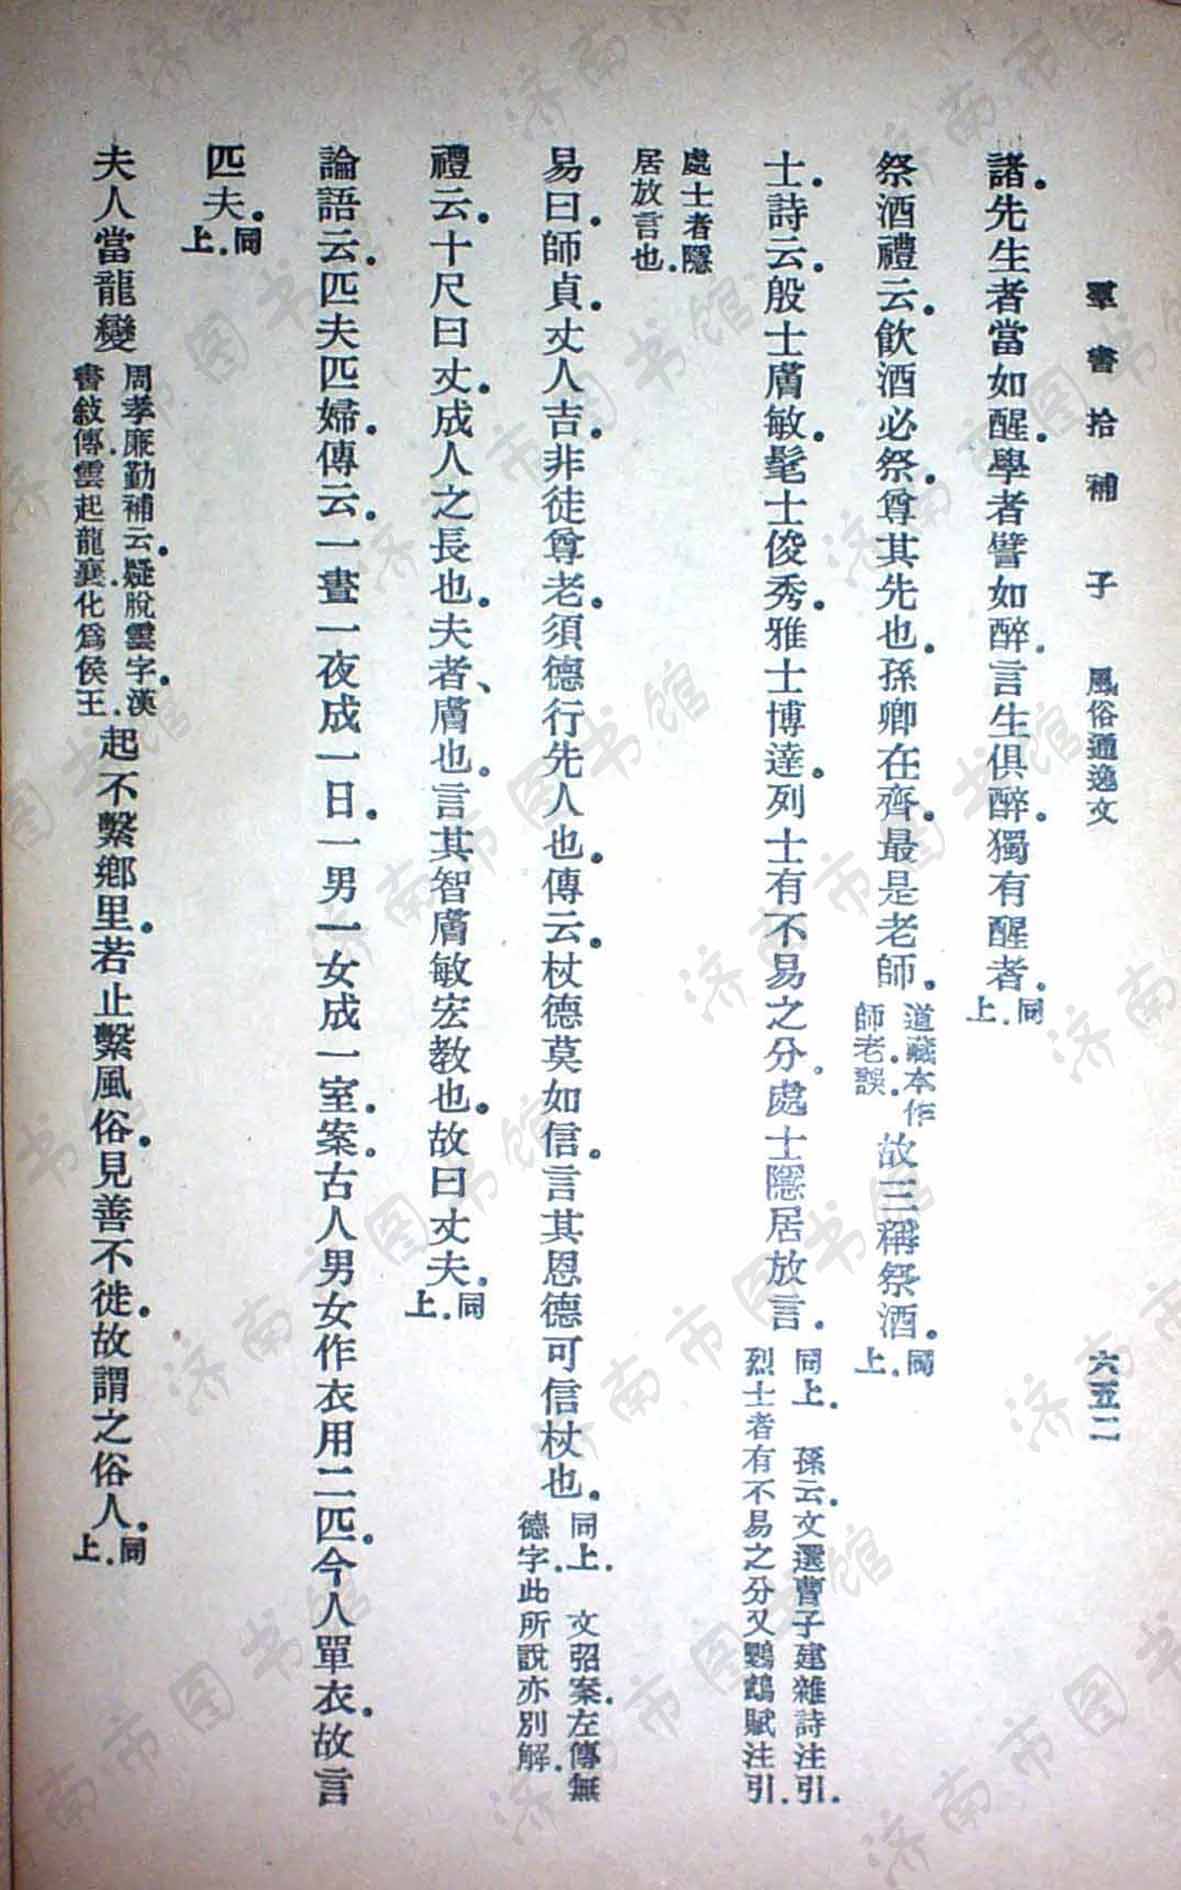 羣書拾補　子　風俗通逸文　六五二
諸。先生者當如醒。學者譬如醉。言生俱醉。獨有醒者。同上。
祭酒禮云。飲酒必祭。尊其先也。孫卿在齊。最是老師。道藏本作師老。誤。故三稱祭酒。同上。
士。詩云。殷士膚敏。髦士俊秀。雅士博達。列士有不易之分。處士隱居放言。同上。　孫云。文選曹子建雜詩注引。烈士者有不易之分又鸚鵡賦注引。
處士者隱居放言也。
易曰。師貞。丈人吉。非徒尊老。須德行先人也。傳云。杖德莫如信。言其恩德可信杖也。同上。　文弨案。左傳無德字。此所說亦別解。
禮云。十尺曰丈。成人之長也。夫者、膚也。言其智膚敏宏教也。故曰丈夫。同上。
論語云。匹夫匹婦。傳云。一晝一夜成一日。一男一女成一室。案。古人男女作衣用二匹。今人單衣。故言
匹夫。同上。
夫人當龍變周孝廉勤補云。疑脫雲字。漢書敍傳。雲起龍襄。化爲侯王。起不繫鄉里。若止繫風俗。見善不徙。故謂之俗人。同上。